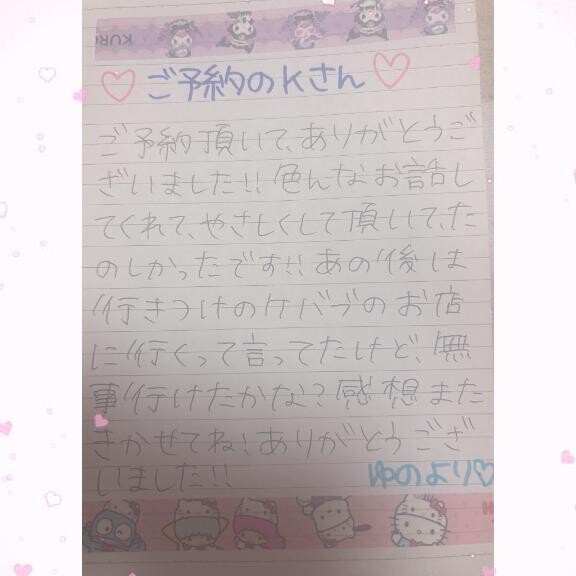 KUR
ご予約のKさん
ご予約頂いて、ありがとうご
ざいました!!色んなお話し
てくれて、やさしくして頂いて、た
のしかったです!!あの後は
行きつけのケバブのお店
に行くって言ってたけど、無
事行けたかな?感想また
きかせてね!ありがとうござ
いました!!
ゆのより♡
H